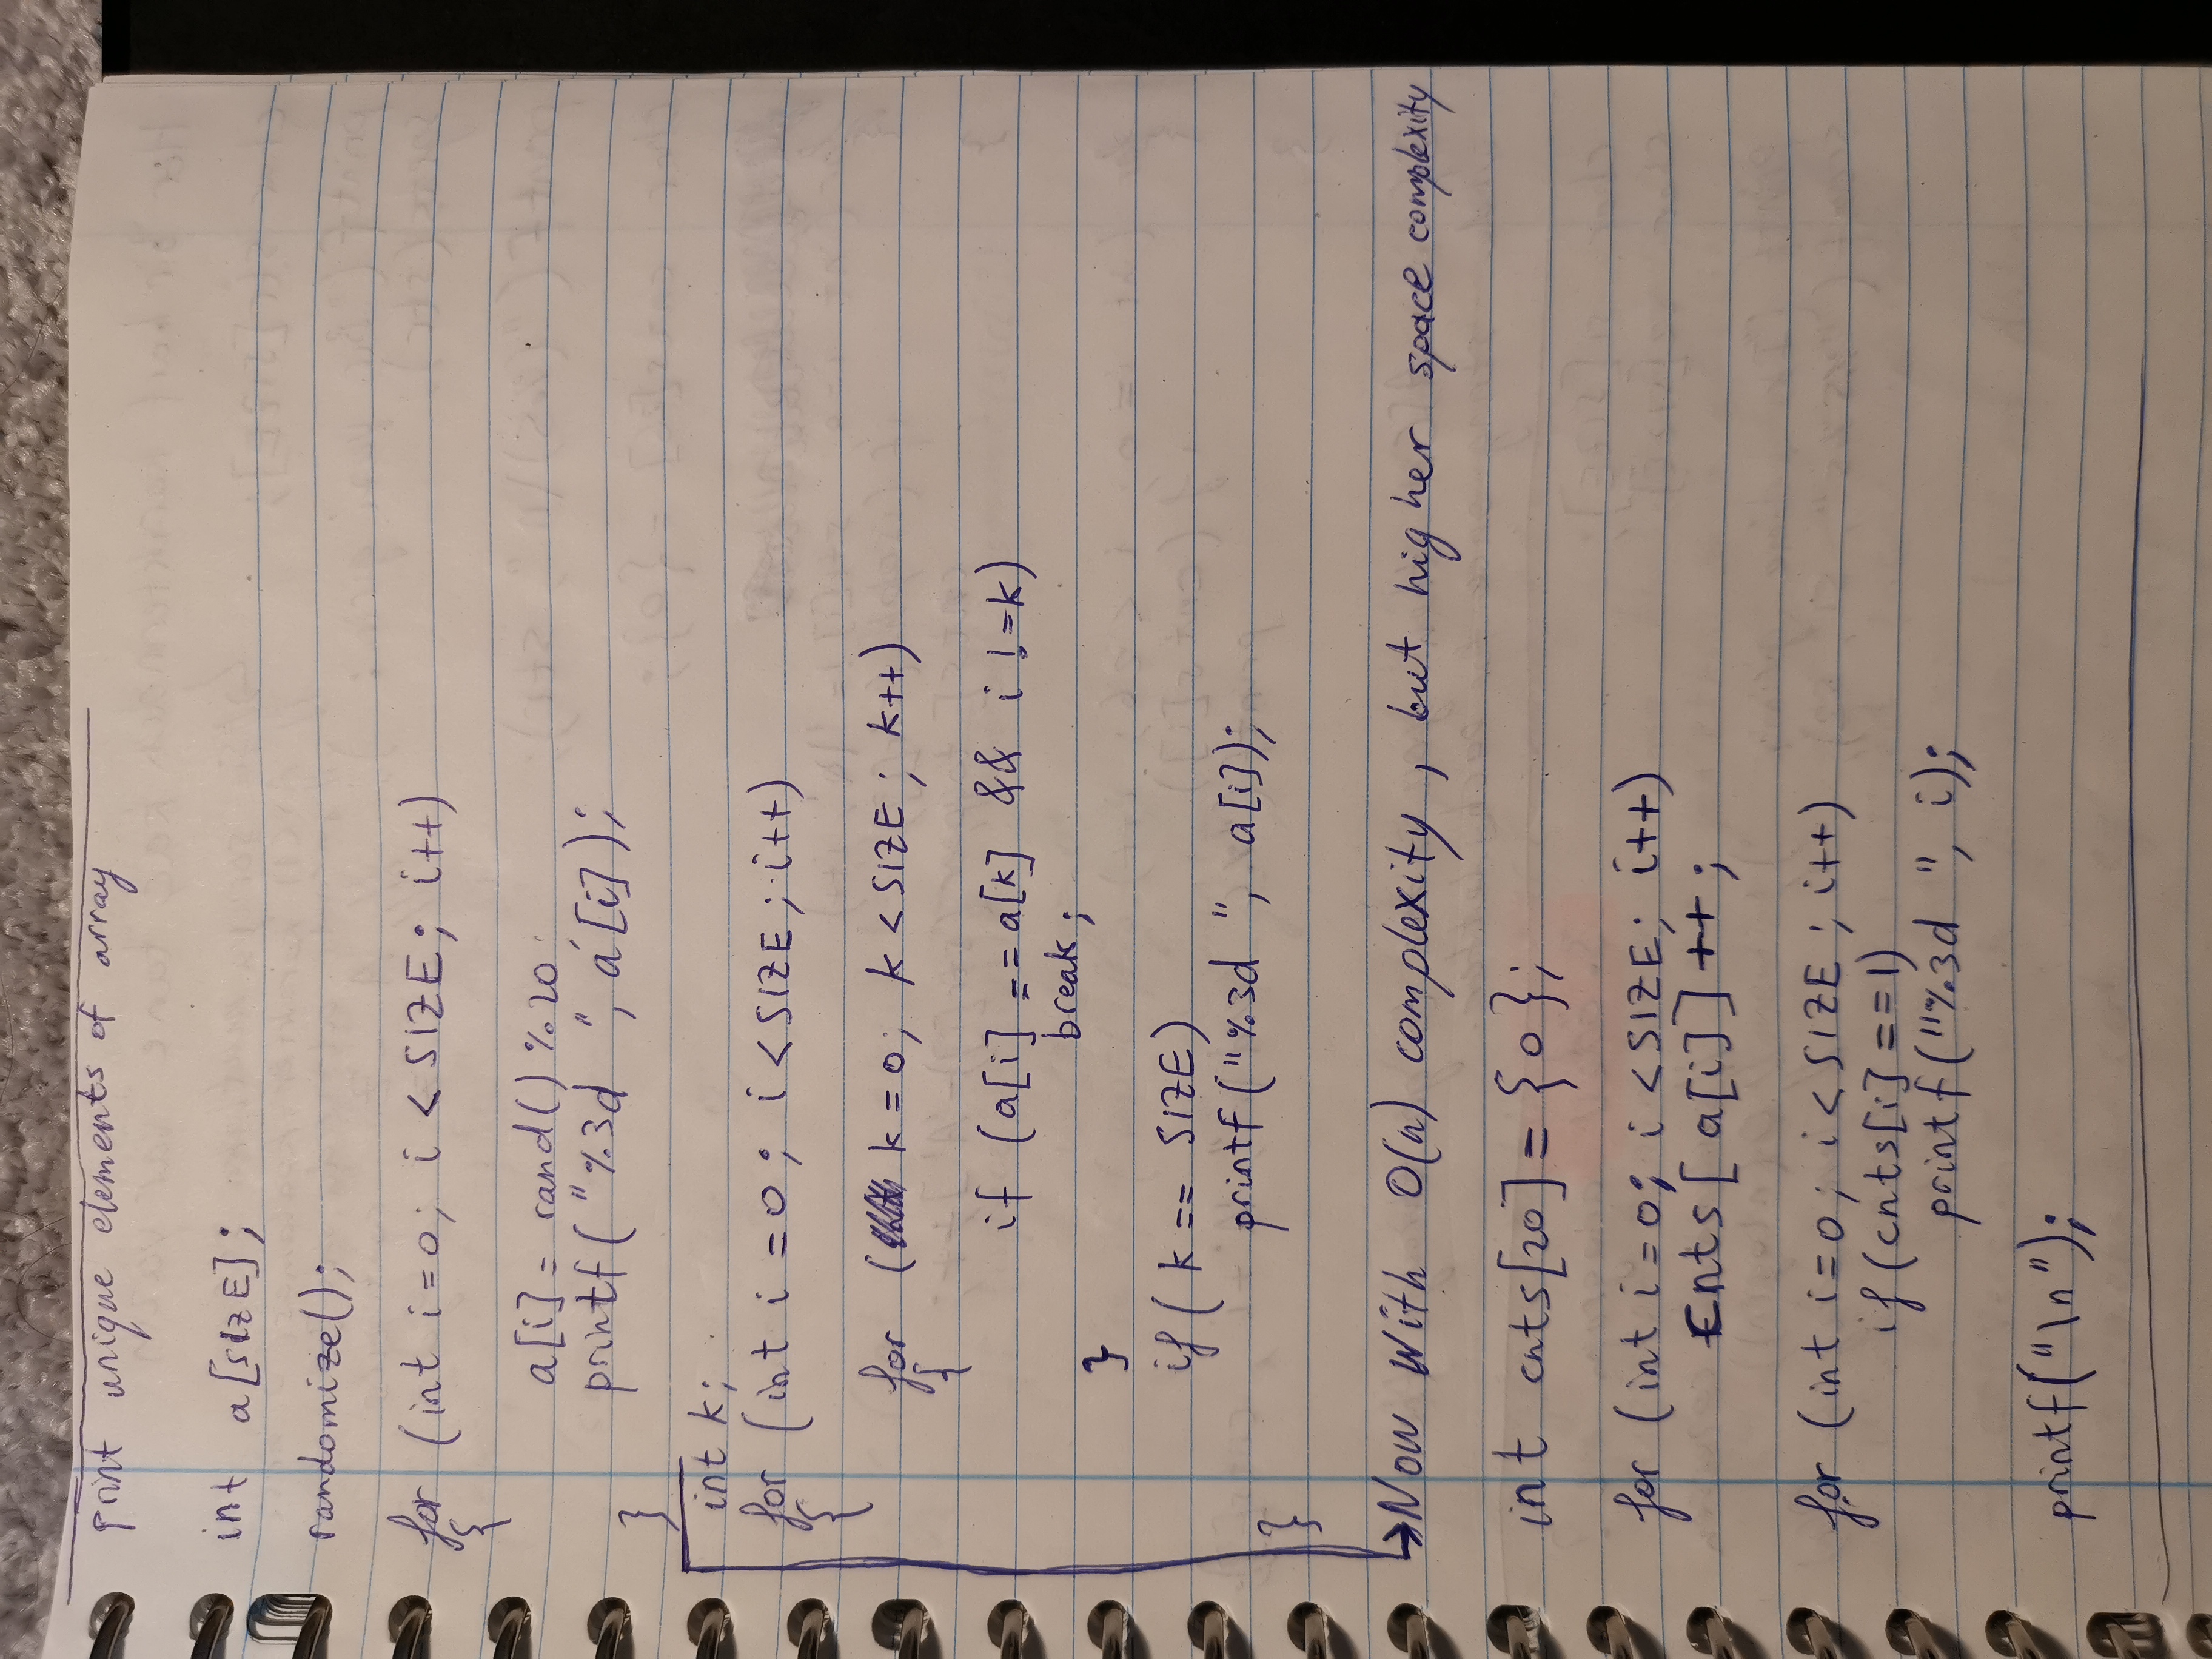 print unique elements of array
int a[SIZE];
randomize();
for (int i=0; i < SIZE; i++)
{
a[i] = rand() %20;
printf("%3d ", a[i]);
}
int k;
for (int i = 0; i < SIZE; i++)
{
for ( k = 0; k < SIZE; k++)
{
if (a[i] == a[k] && i != k)
break;
}
if ( k == SIZE)
printf("%3d ", a[i]);
}
→Now With O(n) complexity, but higher space complexity
int cnts[20] = {0};
for (int i=0; i < SIZE; i++)
cnts[ a[i] ] ++;
for (int i=0; i < SIZE; i++)
if (cnts[i] ==1)
printf("%3d ", i);
printf("\n");